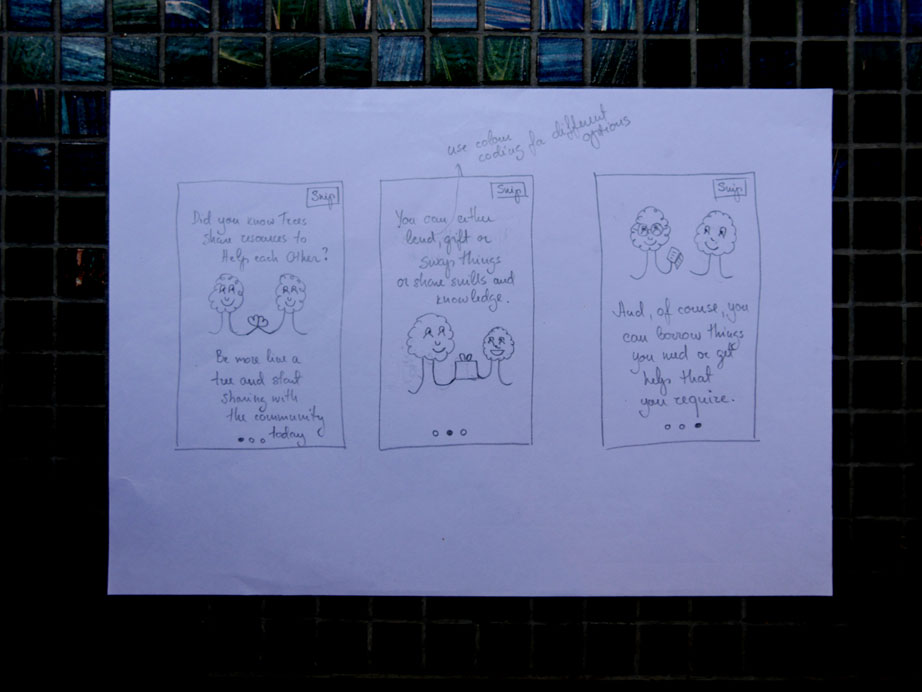 use colour
coding for different
options
Skip
Did you know Trees
share resources to
Help each Other?
Be more like a
tree and start
sharing with
the community
today
Skip
You can either
lend, gift or
swap things
or share skills and
knowledge.
Skip
And, of course, you
can borrow things
you need or get
help that
you require.